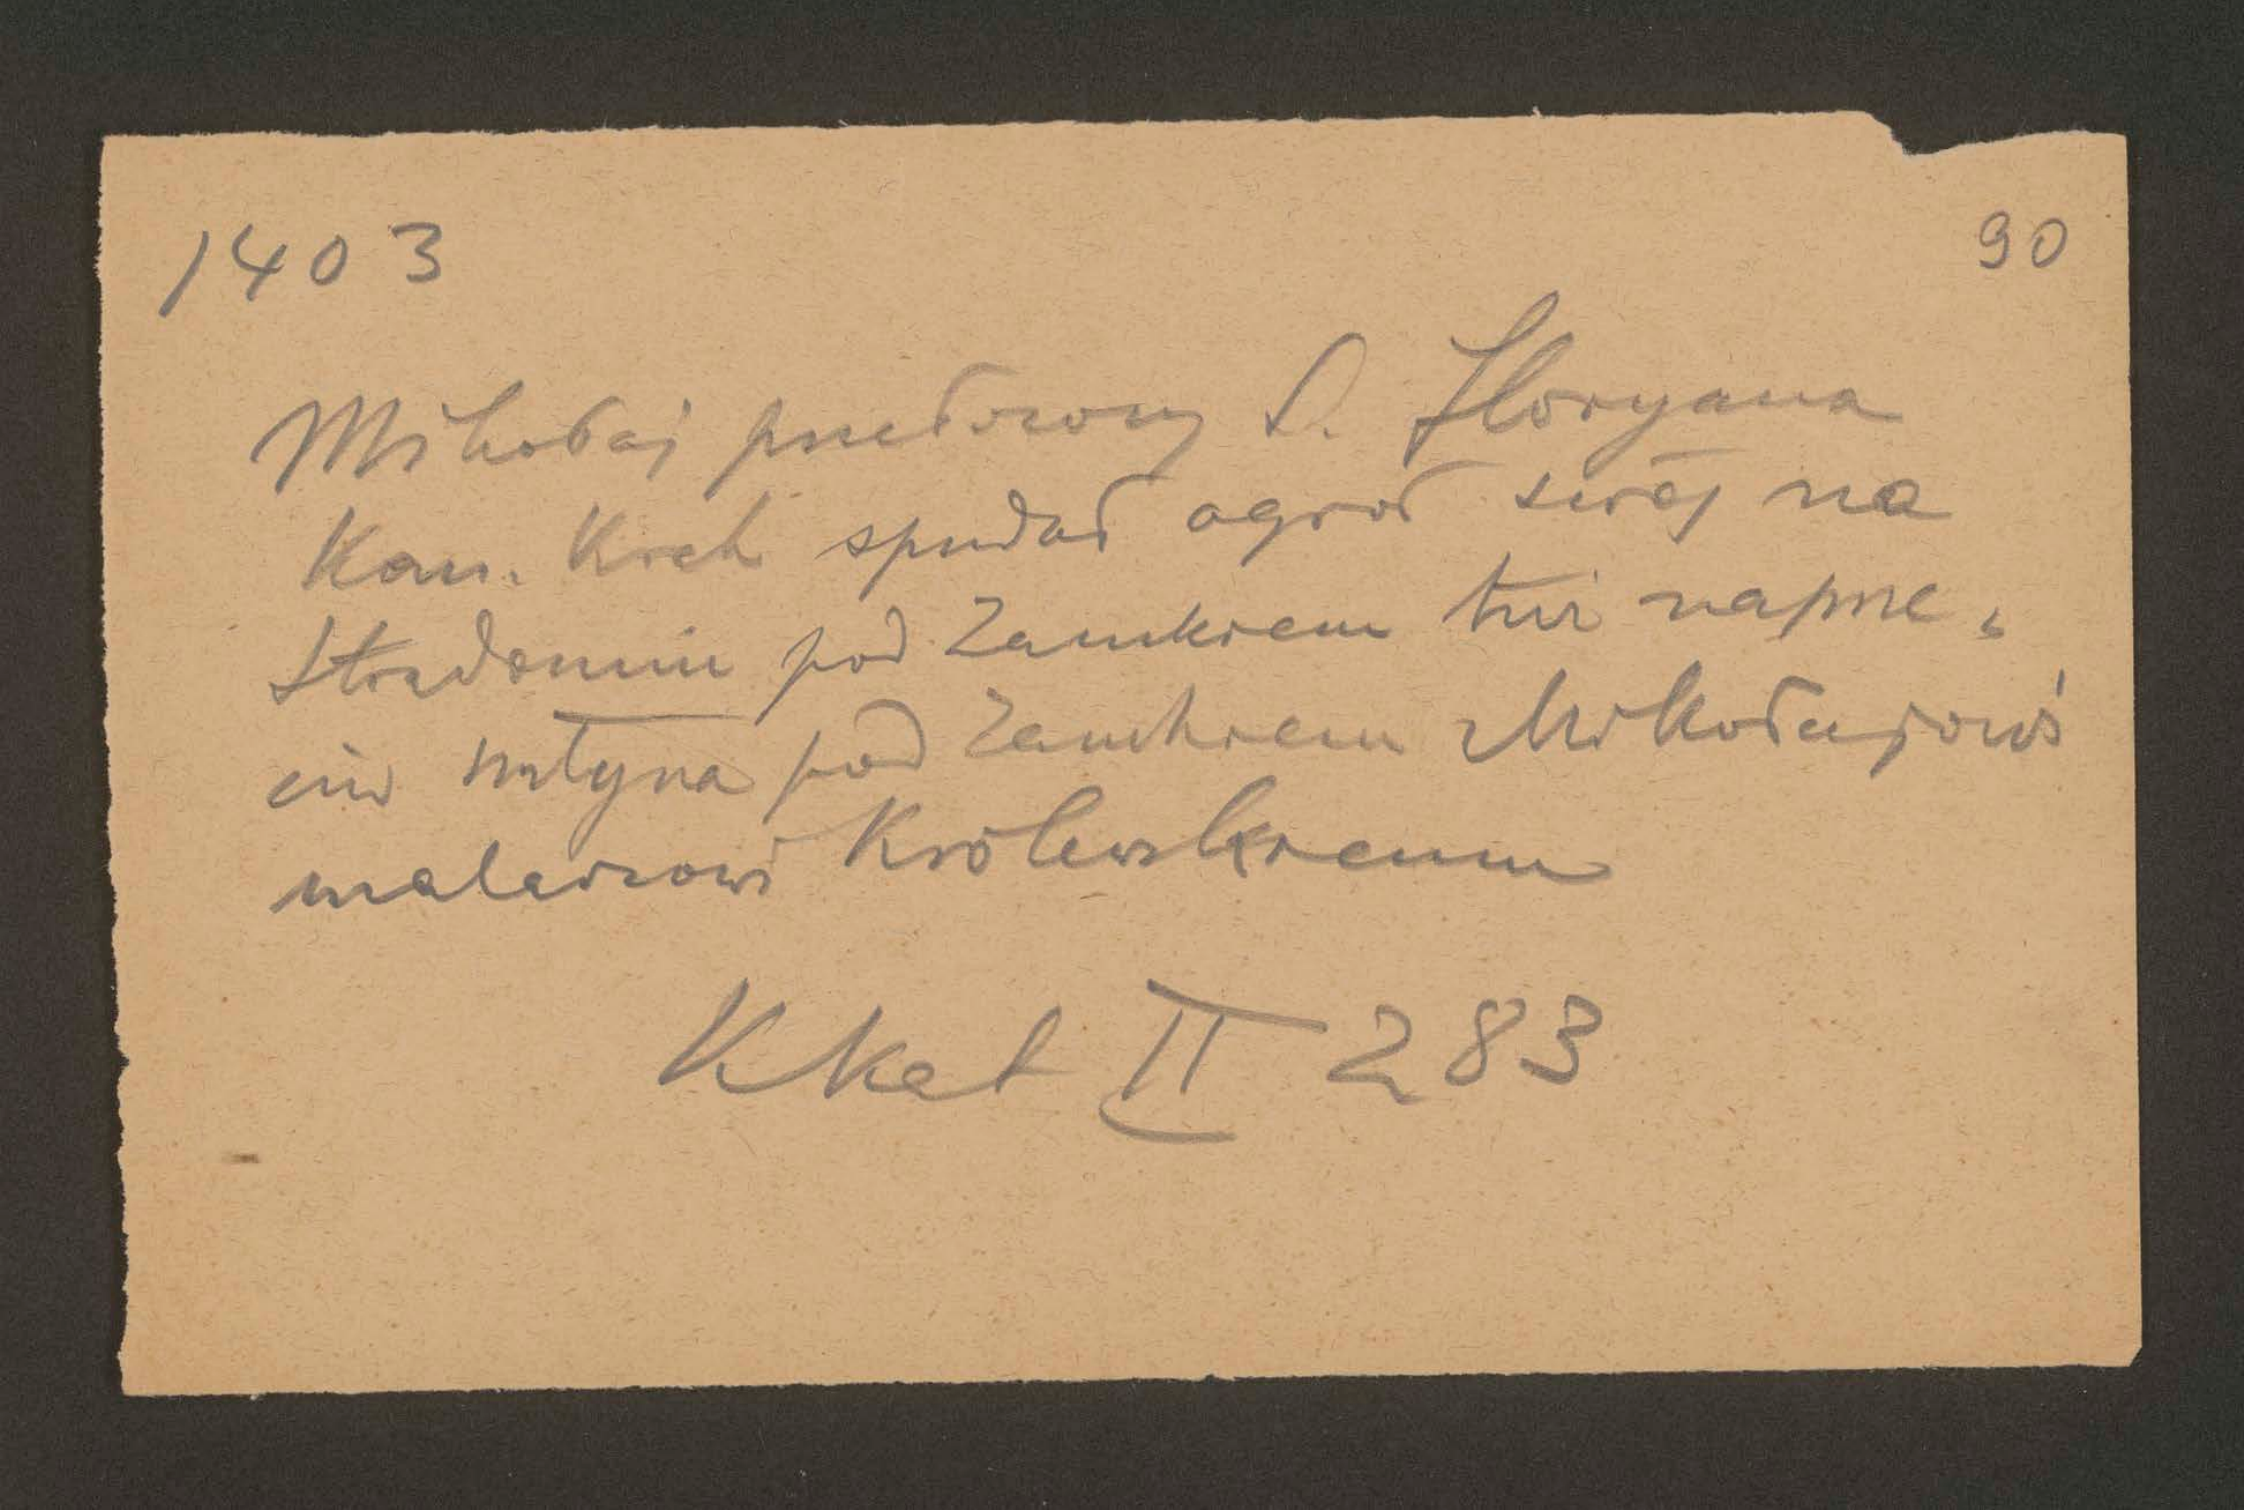 1403
90
Mikołaj przełożony S. Floryana
Kan. Krak spzedał ogród swój na
Stradomiu pod Zamkiem tuż naprze„
ciw młyna pod Zamkiem Mikołajowi
malarzowi Królewskiemu
KKat II 283